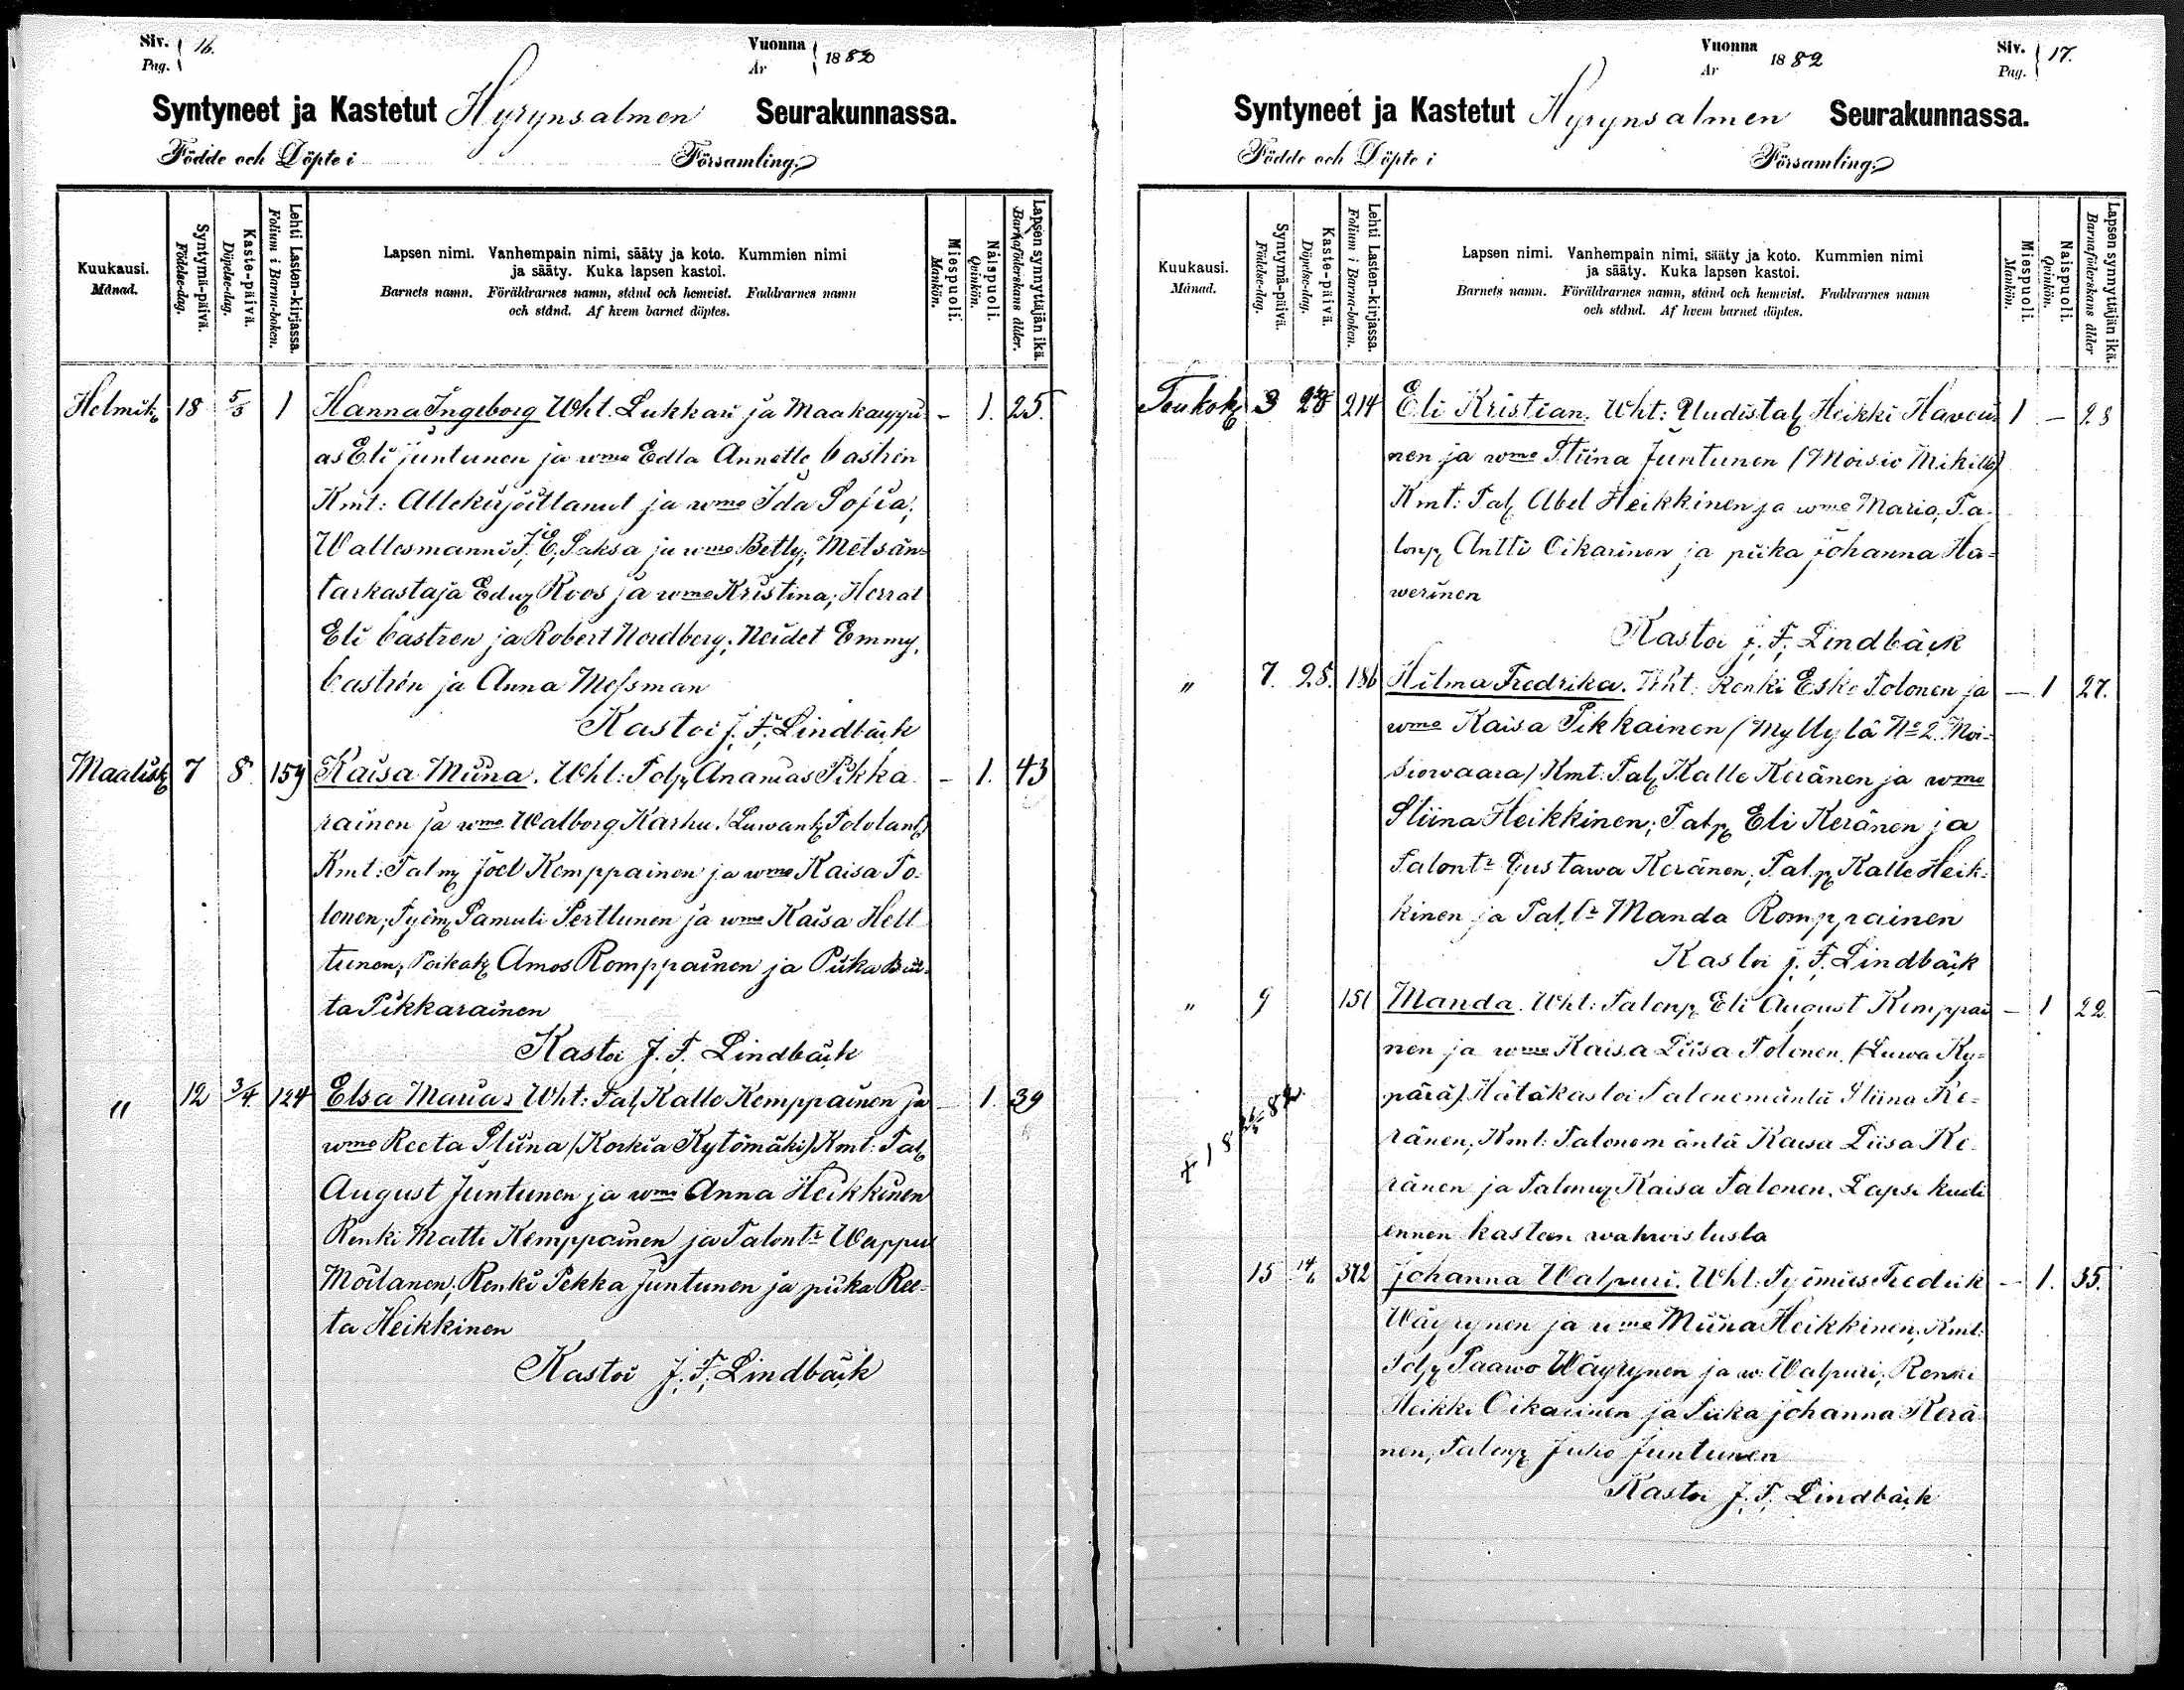 Siv. 16.
Pag.
Vuonna 1882
År
Syntyneet ja Kastetut Hyrynsalmen Seurakunnassa.
Födde och Döpte i Församling.
Kuukausi.
Månad.
Syntymä-päivä.
Födelse-dag.
Kaste-päivä.
Döpelse-dag.
Lehti Lasten-kirjassa.
Folium i Barna-boken.
Lapsen nimi. Vanhempain nimi, sääty ja koto. Kummien nimi
ja sääty. Kuka lapsen kastoi.
Barnets namn. Föräldrarnes namn, stånd och hemvist. Faddrarnes namn
och stånd. Af hvem barnet döptes.
Miespuoli.
Mankön.
Naispuoli.
Qvinkön.
Lapsen synnyttäjän ikä.
Barnaföderskans ålder.
Helmik 18 5/3 1 Hanna Ingeborg Wht. Lukkari ja Maakauppi- - 1. 25.
as Eli Juntunen ja wmo Edla Annette Castrén
Kmt: Allekirjoittanut ja wmo Ida Sofia;
Wallesmanni J. E. Saksa ja wmo Betty; Metsän-
tarkastaja Edw Roos ja wmo Kristina; Herrat
Eli Castren ja Robert Nordberg; Neidet Emmy
Castrén ja Anna Messman
Kastoi J. F. Lindbäck
Maalisk 7 8. 159 Kaisa Miina. Wht: Tolp Ananias Pikka- - 1. 43
rainen ja wmo Walborg Karhu. (Luwank Tololank)
Kmt: Talm Joel Kemppainen ja wmo Kaisa To-
lonen; Työm Samuli Perttunen ja wmo Kaisa Helt-
tunen; Poikat Amos Romppainen ja Piika Brii-
ta Pikkarainen
Kastoi J. F. Lindbäck
" 12 3/4. 124 Elsa Maria. Wht: Tal Kalle Kemppainen ja - 1. 39
wmo Reeta Stiina (Korkia Kytömäki) Kmt: Tal
August Juntunen ja wmo Anna Heikkinen
Renki Matti Kemppainen ja Talontr Wappu
Moilanen; Renki Pekka Juntunen ja piika Ree-
ta Heikkinen
Kastoi J. F. Lindbäck
Vuonna 1882
År
Siv. 17.
Pag.
Syntyneet ja Kastetut Hyrynsalmen Seurakunnassa.
Födde och Döpte i Församling.
Kuukausi.
Månad.
Syntymä-päivä.
Födelse-dag.
Kaste-päivä.
Döpelse-dag.
Lehti Lasten-kirjassa.
Folium i Barna-boken.
Lapsen nimi. Vanhempain nimi, sääty ja koto. Kummien nimi
ja sääty. Kuka lapsen kastoi.
Barnets namn. Föräldrarnes namn, stånd och hemvist. Faddrarnes namn
och stånd. Af hvem barnet döptes.
Miespuoli.
Mankön.
Naispuoli.
Qvinkön.
Lapsen synnyttäjän ikä.
Barnaföderskans ålder
Toukok 3 28 214 Eli Kristian. Wht: Uudistal Heikki Haweri- 1 - 28
nen ja wmo Stiina Juntunen (Moisio Mikillä)
Kmt: Tal Abel Heikkinen ja wmo Maria, Ta-
lonp Antti Oikarinen ja piika Johanna Ha-
werinen
Kastoi J. F. Lindbäck
" 7. 28. 186 Hilma Fredrika. Wht: Renki Esko Tolonen ja - 1 27.
wmo Kaisa Pikkainen (Myllylä No 2. Moi-
siowaara) Kmt: Tal Kalle Keränen ja wmo
Stiina Heikkinen; Talp Eli Keränen ja
Talontr Gustawa Keränen; Tal.p Kalle Heik-
kinen ja Tal.tr Manda Romppainen
Kastoi J. F. Lindbäck
" 9 151 Manda. Wht: Talonp Eli August Kemppai- - 1 22.
nen ja wmo Kaisa Liisa Tolonen. (Luwa Ky-
pärä) Hätäkastoi Talonemäntä Stiina Ke-
ränen; Kmt: Talonemäntä Kaisa Liisa Ke-
ränen ja Kaisa Talonen. Lapsi kuoli
ennen kasteen wahwistusta
15 14/6 372 Johanna Walpuri. Wht: Työmies Fredrik - 1. 35.
Wäyrynen ja wmo Miina Heikkinen; Kmt:
Tolp Paawo Wäyrynen ja w. Walpuri; Renki
Heikki Oikarinen ja Piika Johanna Kerä-
nen; Talonp Juho Juntunen
Kastoi J. F. Lindbäck